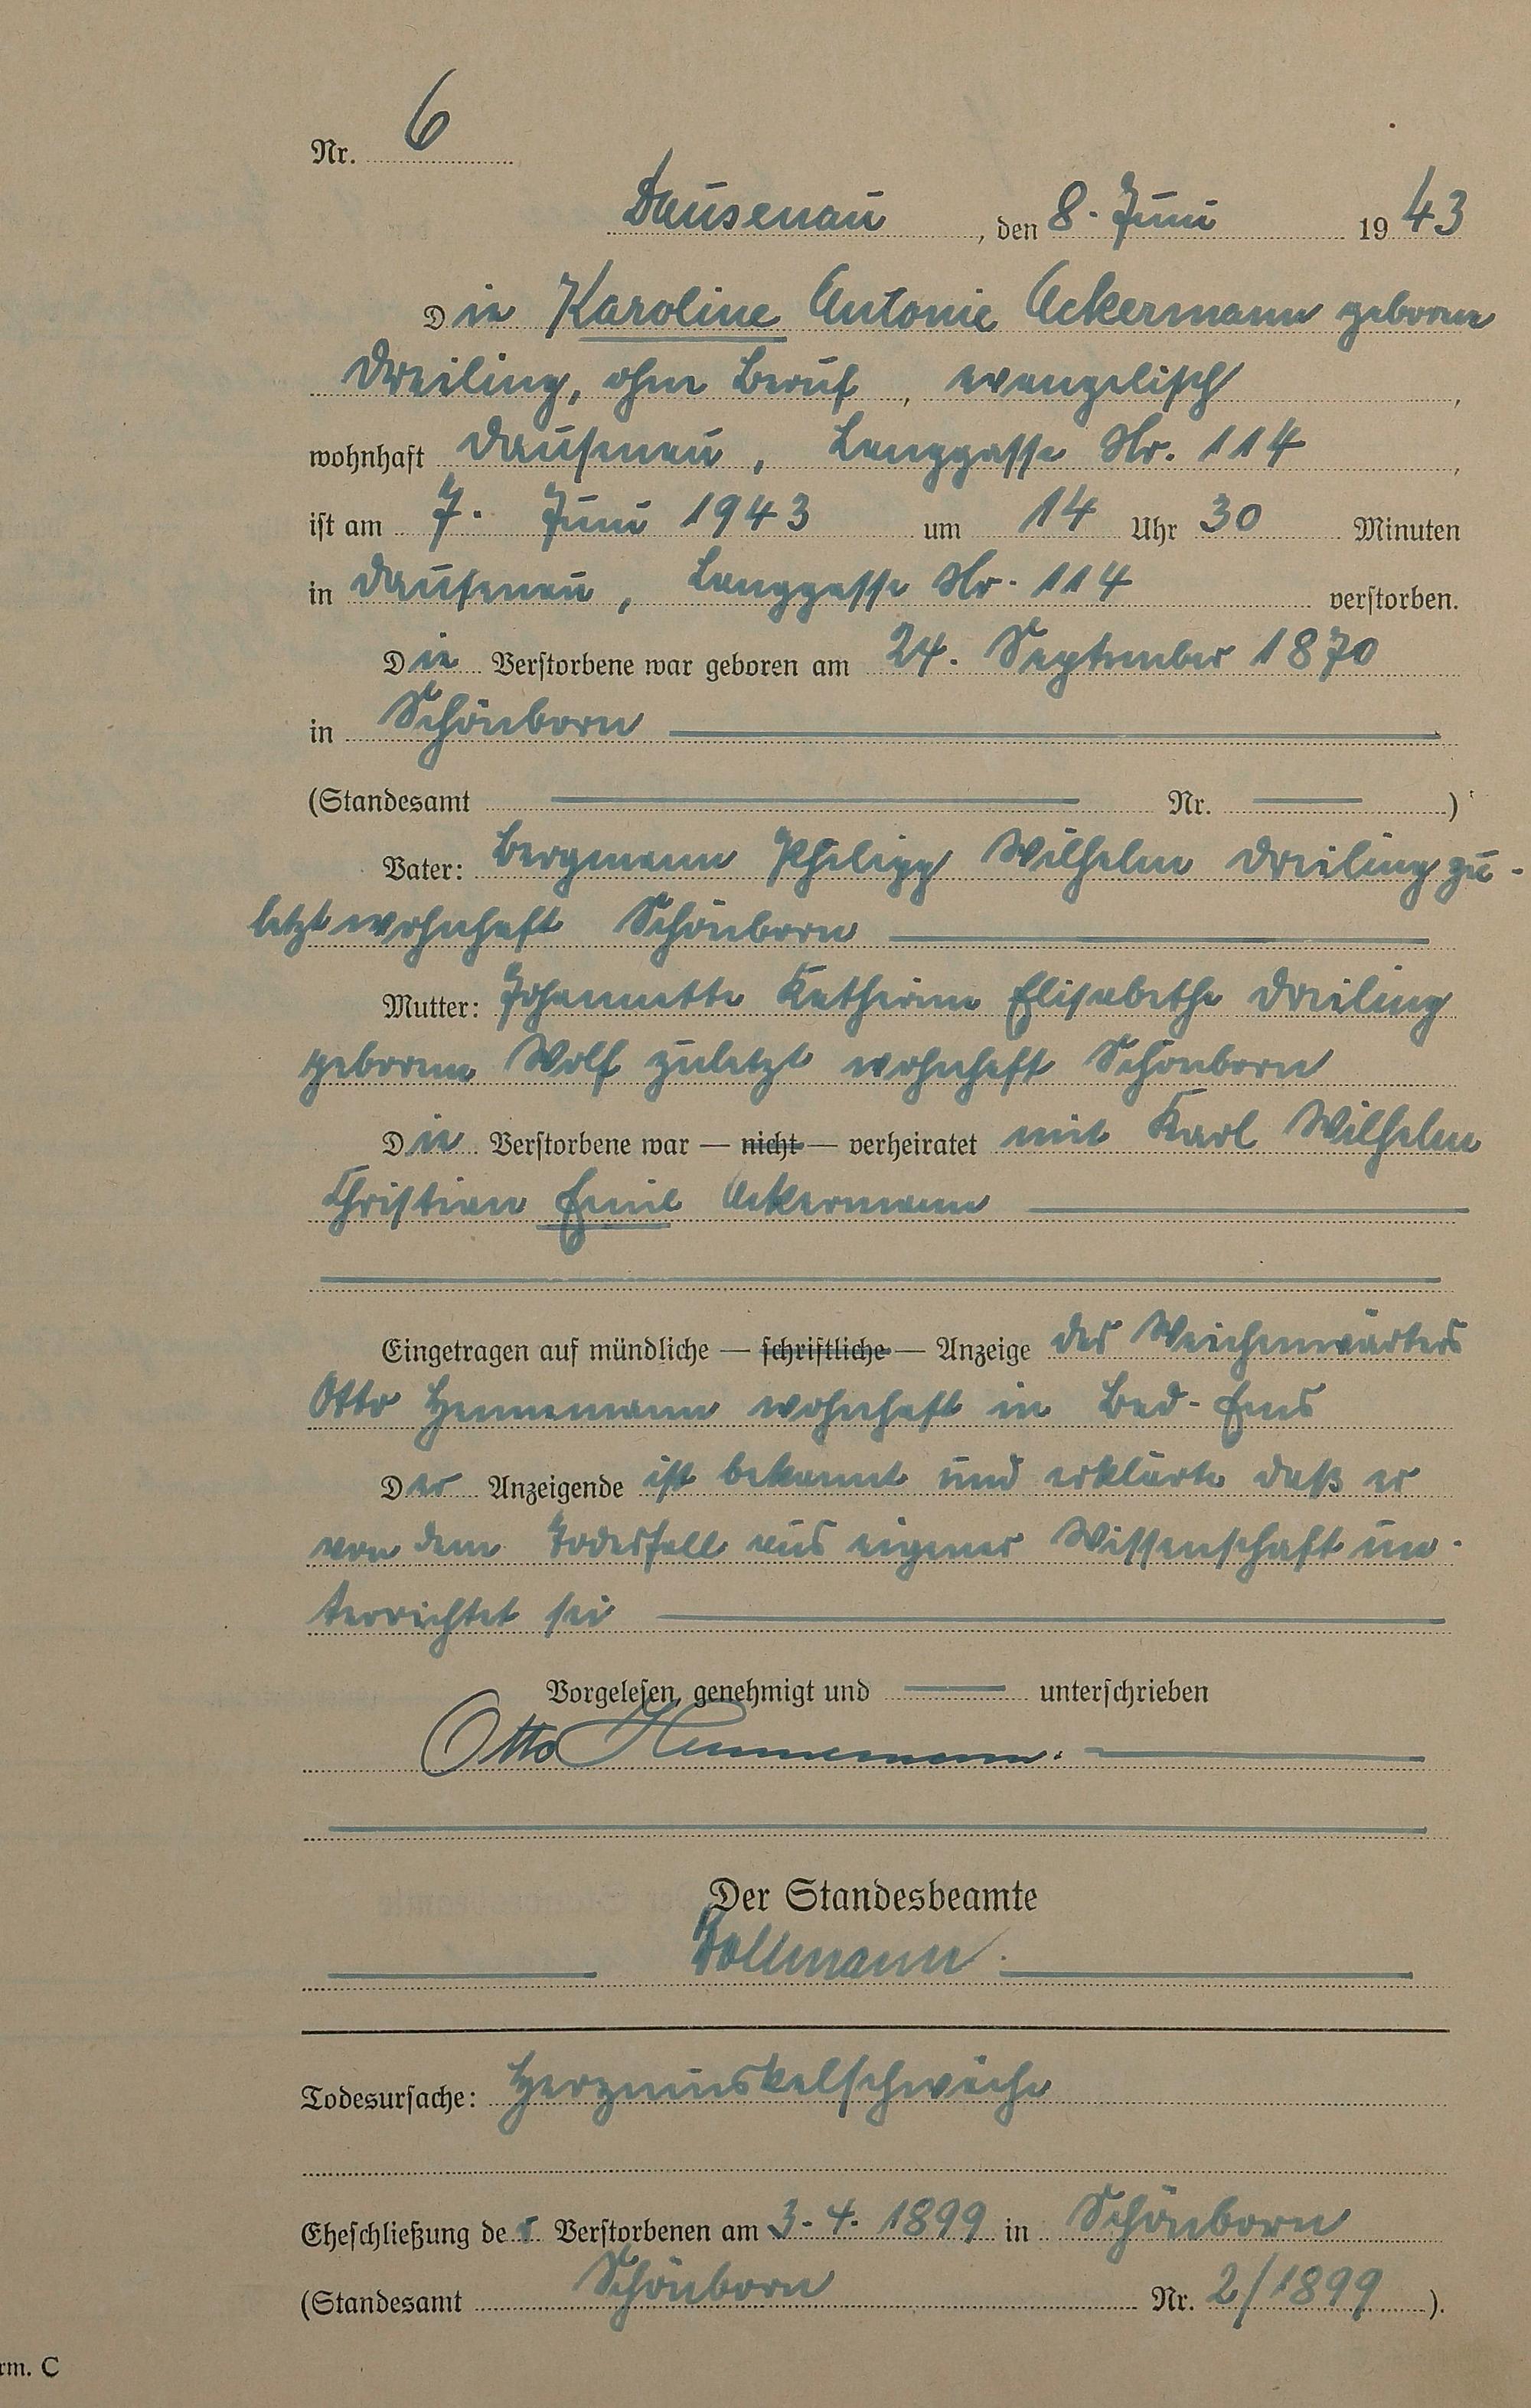 Nr. 6
Dausenau, den 8. Juni 1943
Die Karoline Antonie Ackermann geborene
Dreiling, ohne Beruf, evangelisch,
wohnhaft Dausenau, Langgasse Nr. 114,
ist am 7. Juni 1943 um 14 Uhr 30 Minuten
in Dausenau, Langgasse Nr. 114 verstorben.
Die Verstorbene war geboren am 24. September 1870
in Schönborn
(Standesamt Nr. )
Vater: Bergmann Philipp Wilhelm Dreiling zu-
letzt wohnhaft Schönborn
Mutter: Johannette Katharine Elisabethe Dreiling
geborene Wolf zuletzt wohnhaft Schönborn
Die Verstorbene war — nicht — verheiratet mit Karl Wilhelm
Christian Emil Ackermann
Eingetragen auf mündliche — schriftliche — Anzeige des Weichenwärters
Otto Hennemann wohnhaft in Bad-Ems
Der Anzeigende ist bekannt und erklärte daß er
von dem Todesfall aus eigener Wissenschaft un-
terrichtet sei
Vorgelesen, genehmigt und unterschrieben
Otto Hennemann.
Der Standesbeamte
Vollmann.
Todesursache: Herzmuskelschwäche
Eheschließung der Verstorbenen am 3.4.1899 in Schönborn
(Standesamt Schönborn Nr. 2/1899).
rm. C